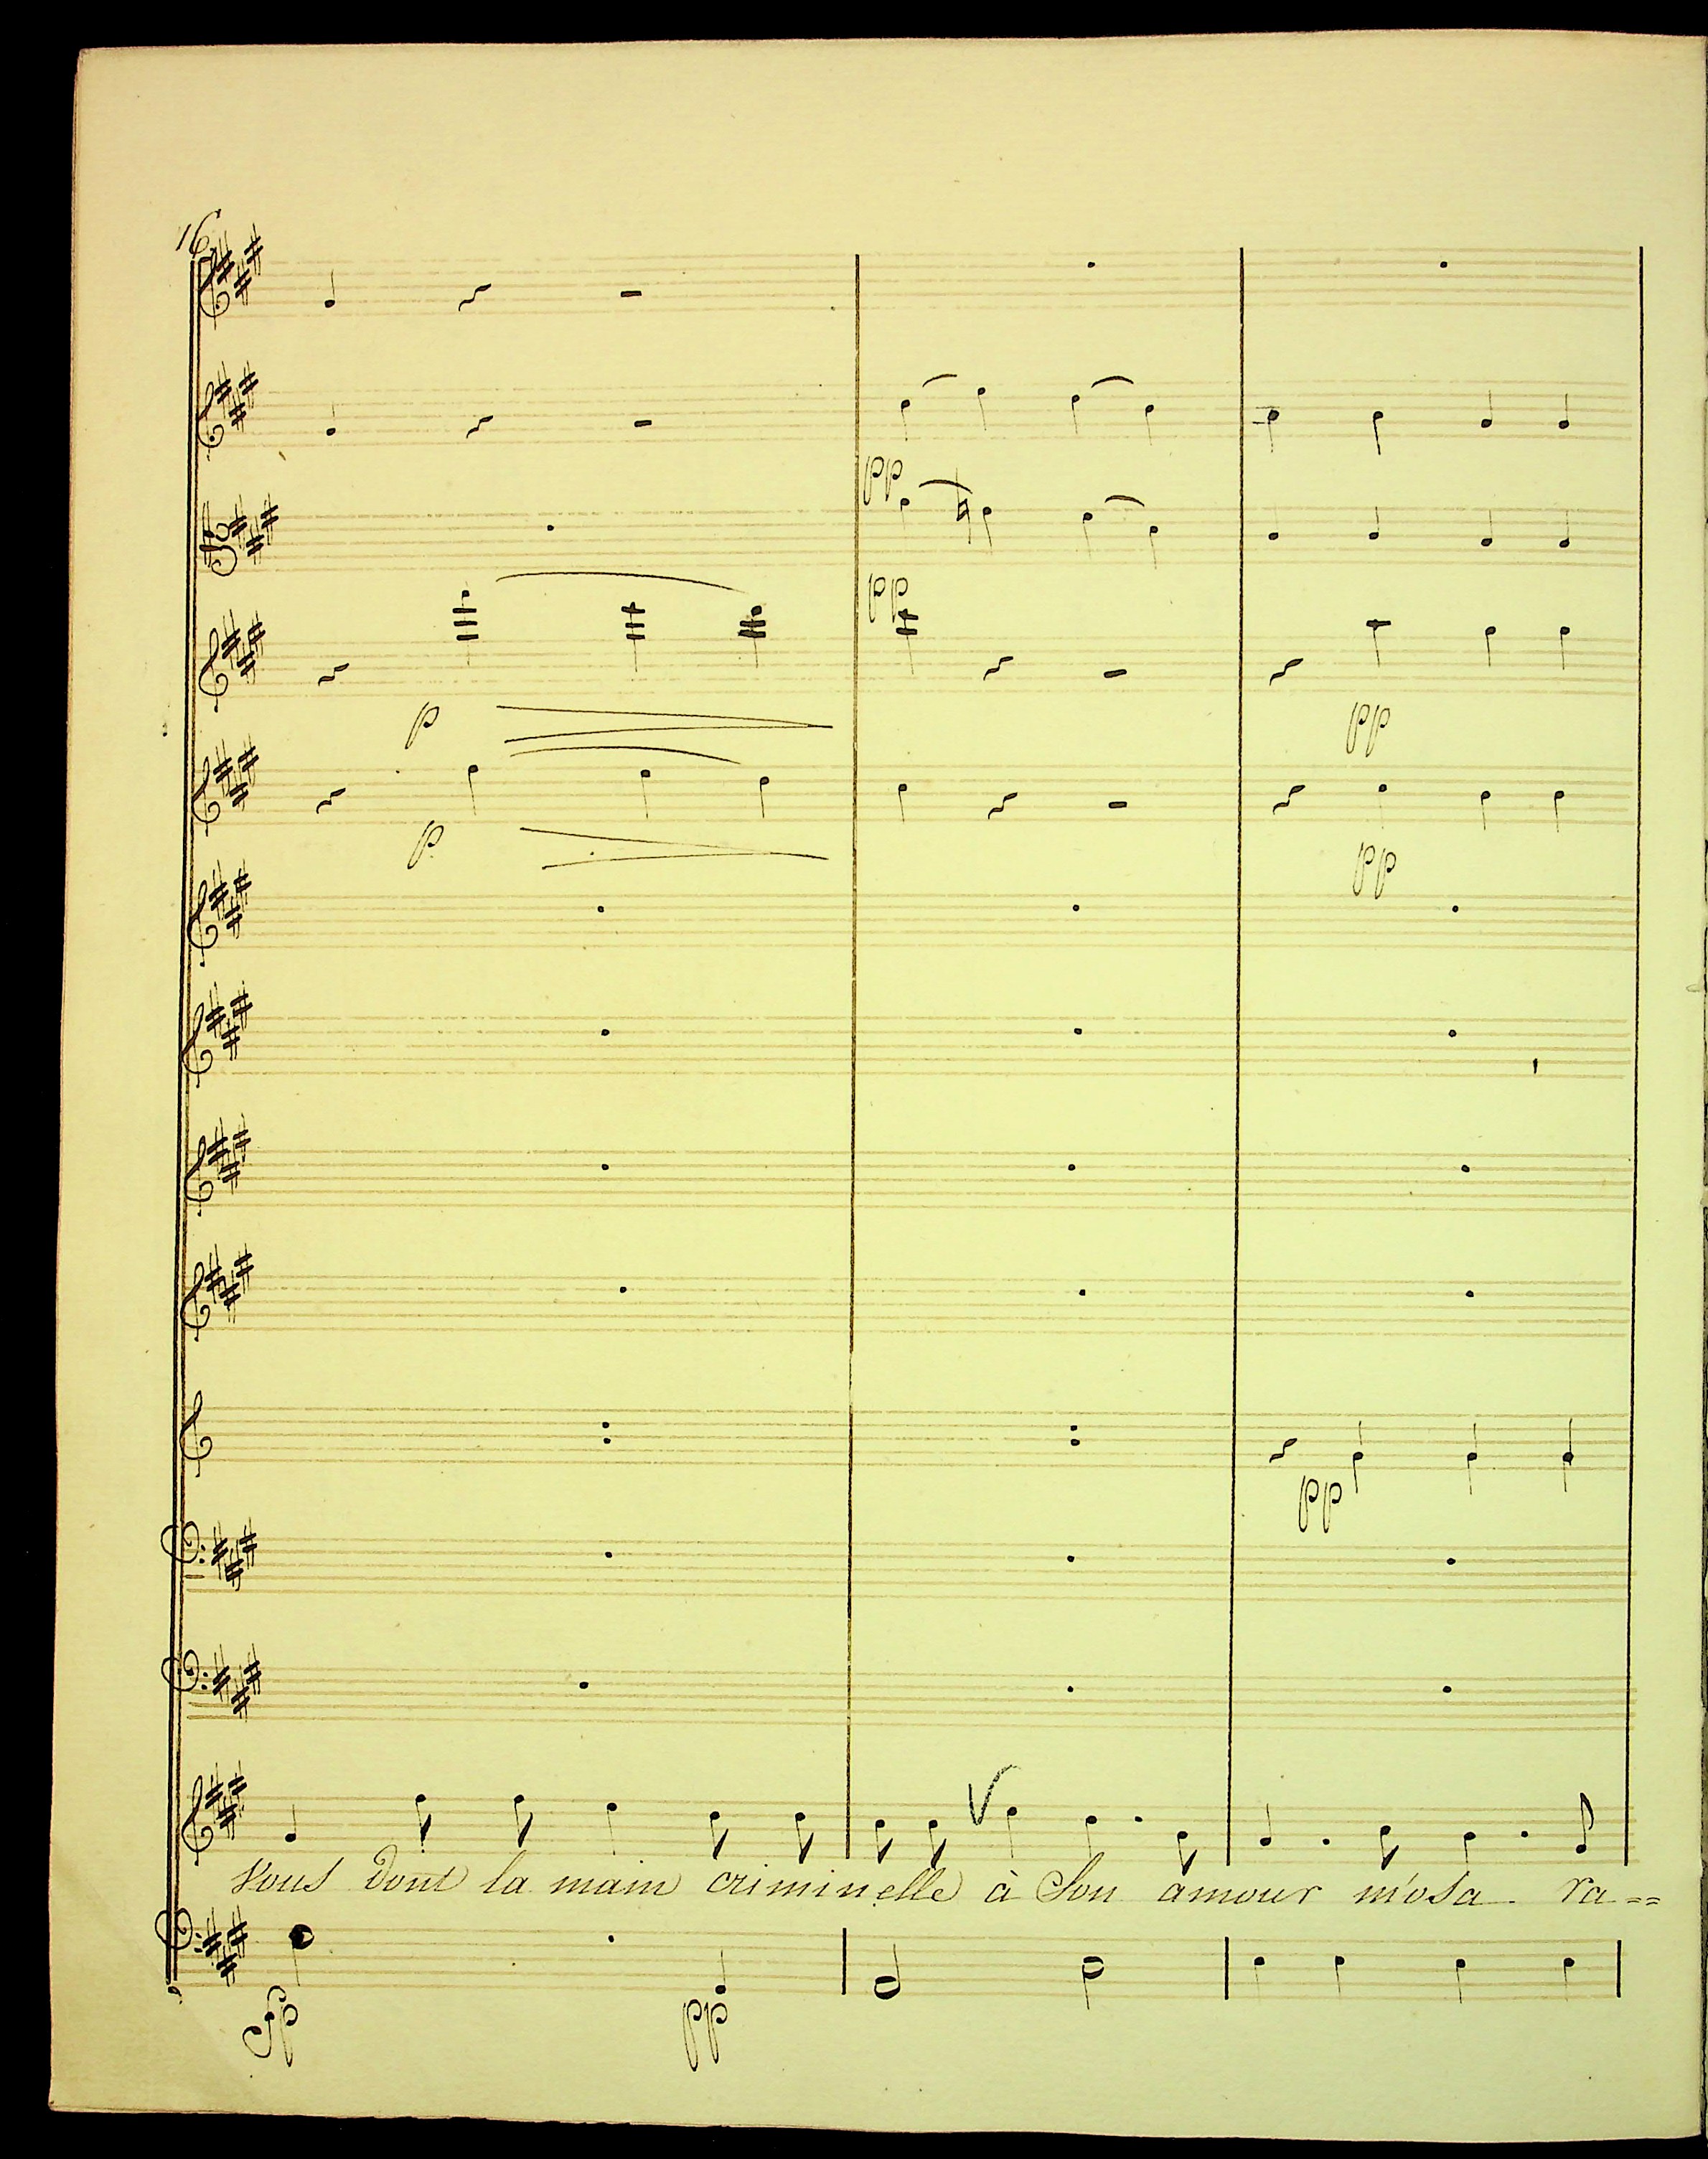 16
pp
pp
p
pp
p
pp
pp
Vous Dont la main criminelle à Son amour m'osa ra=
fp
pp